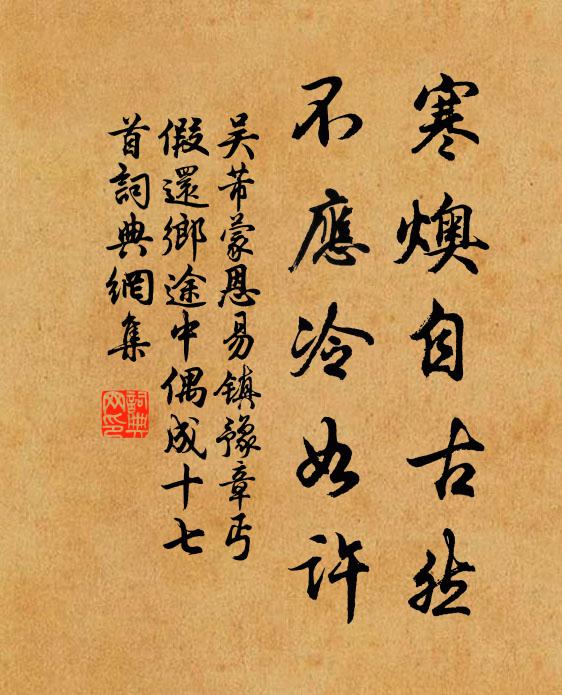 寒燠自古然
不應冷如許
吴芾蒙恩易镇豫章丐
假還鄉途中偶成十七
首詞典網集
詞典网印